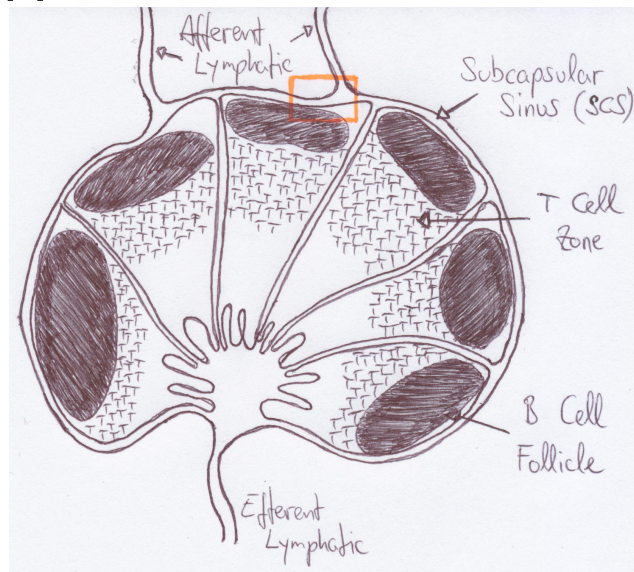 Afferent
Lymphatic
Subcapsular
Sinus (SCS)
T Cell
Zone
B Cell
Follicle
Efferent
Lymphatic